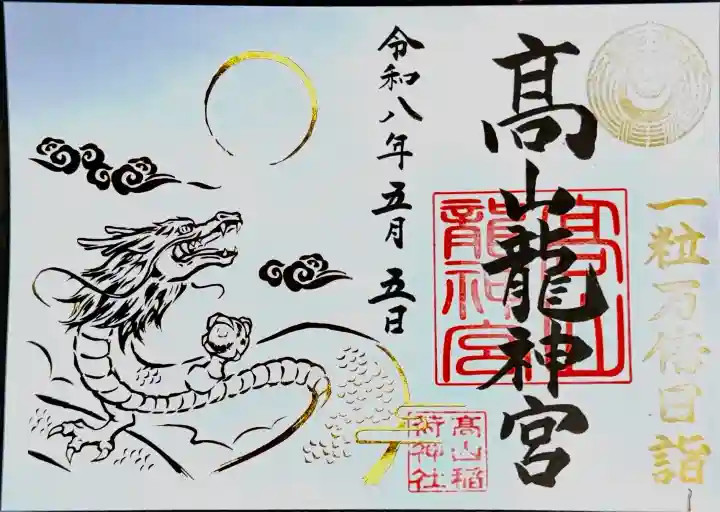 一粒万倍日詣
髙山龍神宮
髙山龍神宮
令和八年五月五日
髙山稲荷神社